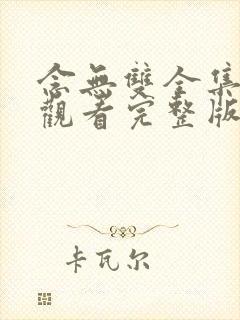 念無雙全集
觀看完整版
卡瓦尔